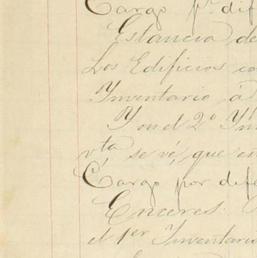 Cargo pr. dif
Estancia de
Los Edificios co
Inventario á
Yon el 2o In
vta se vé, que en
Cargo por dife
Enceres.
el 1er Inventario